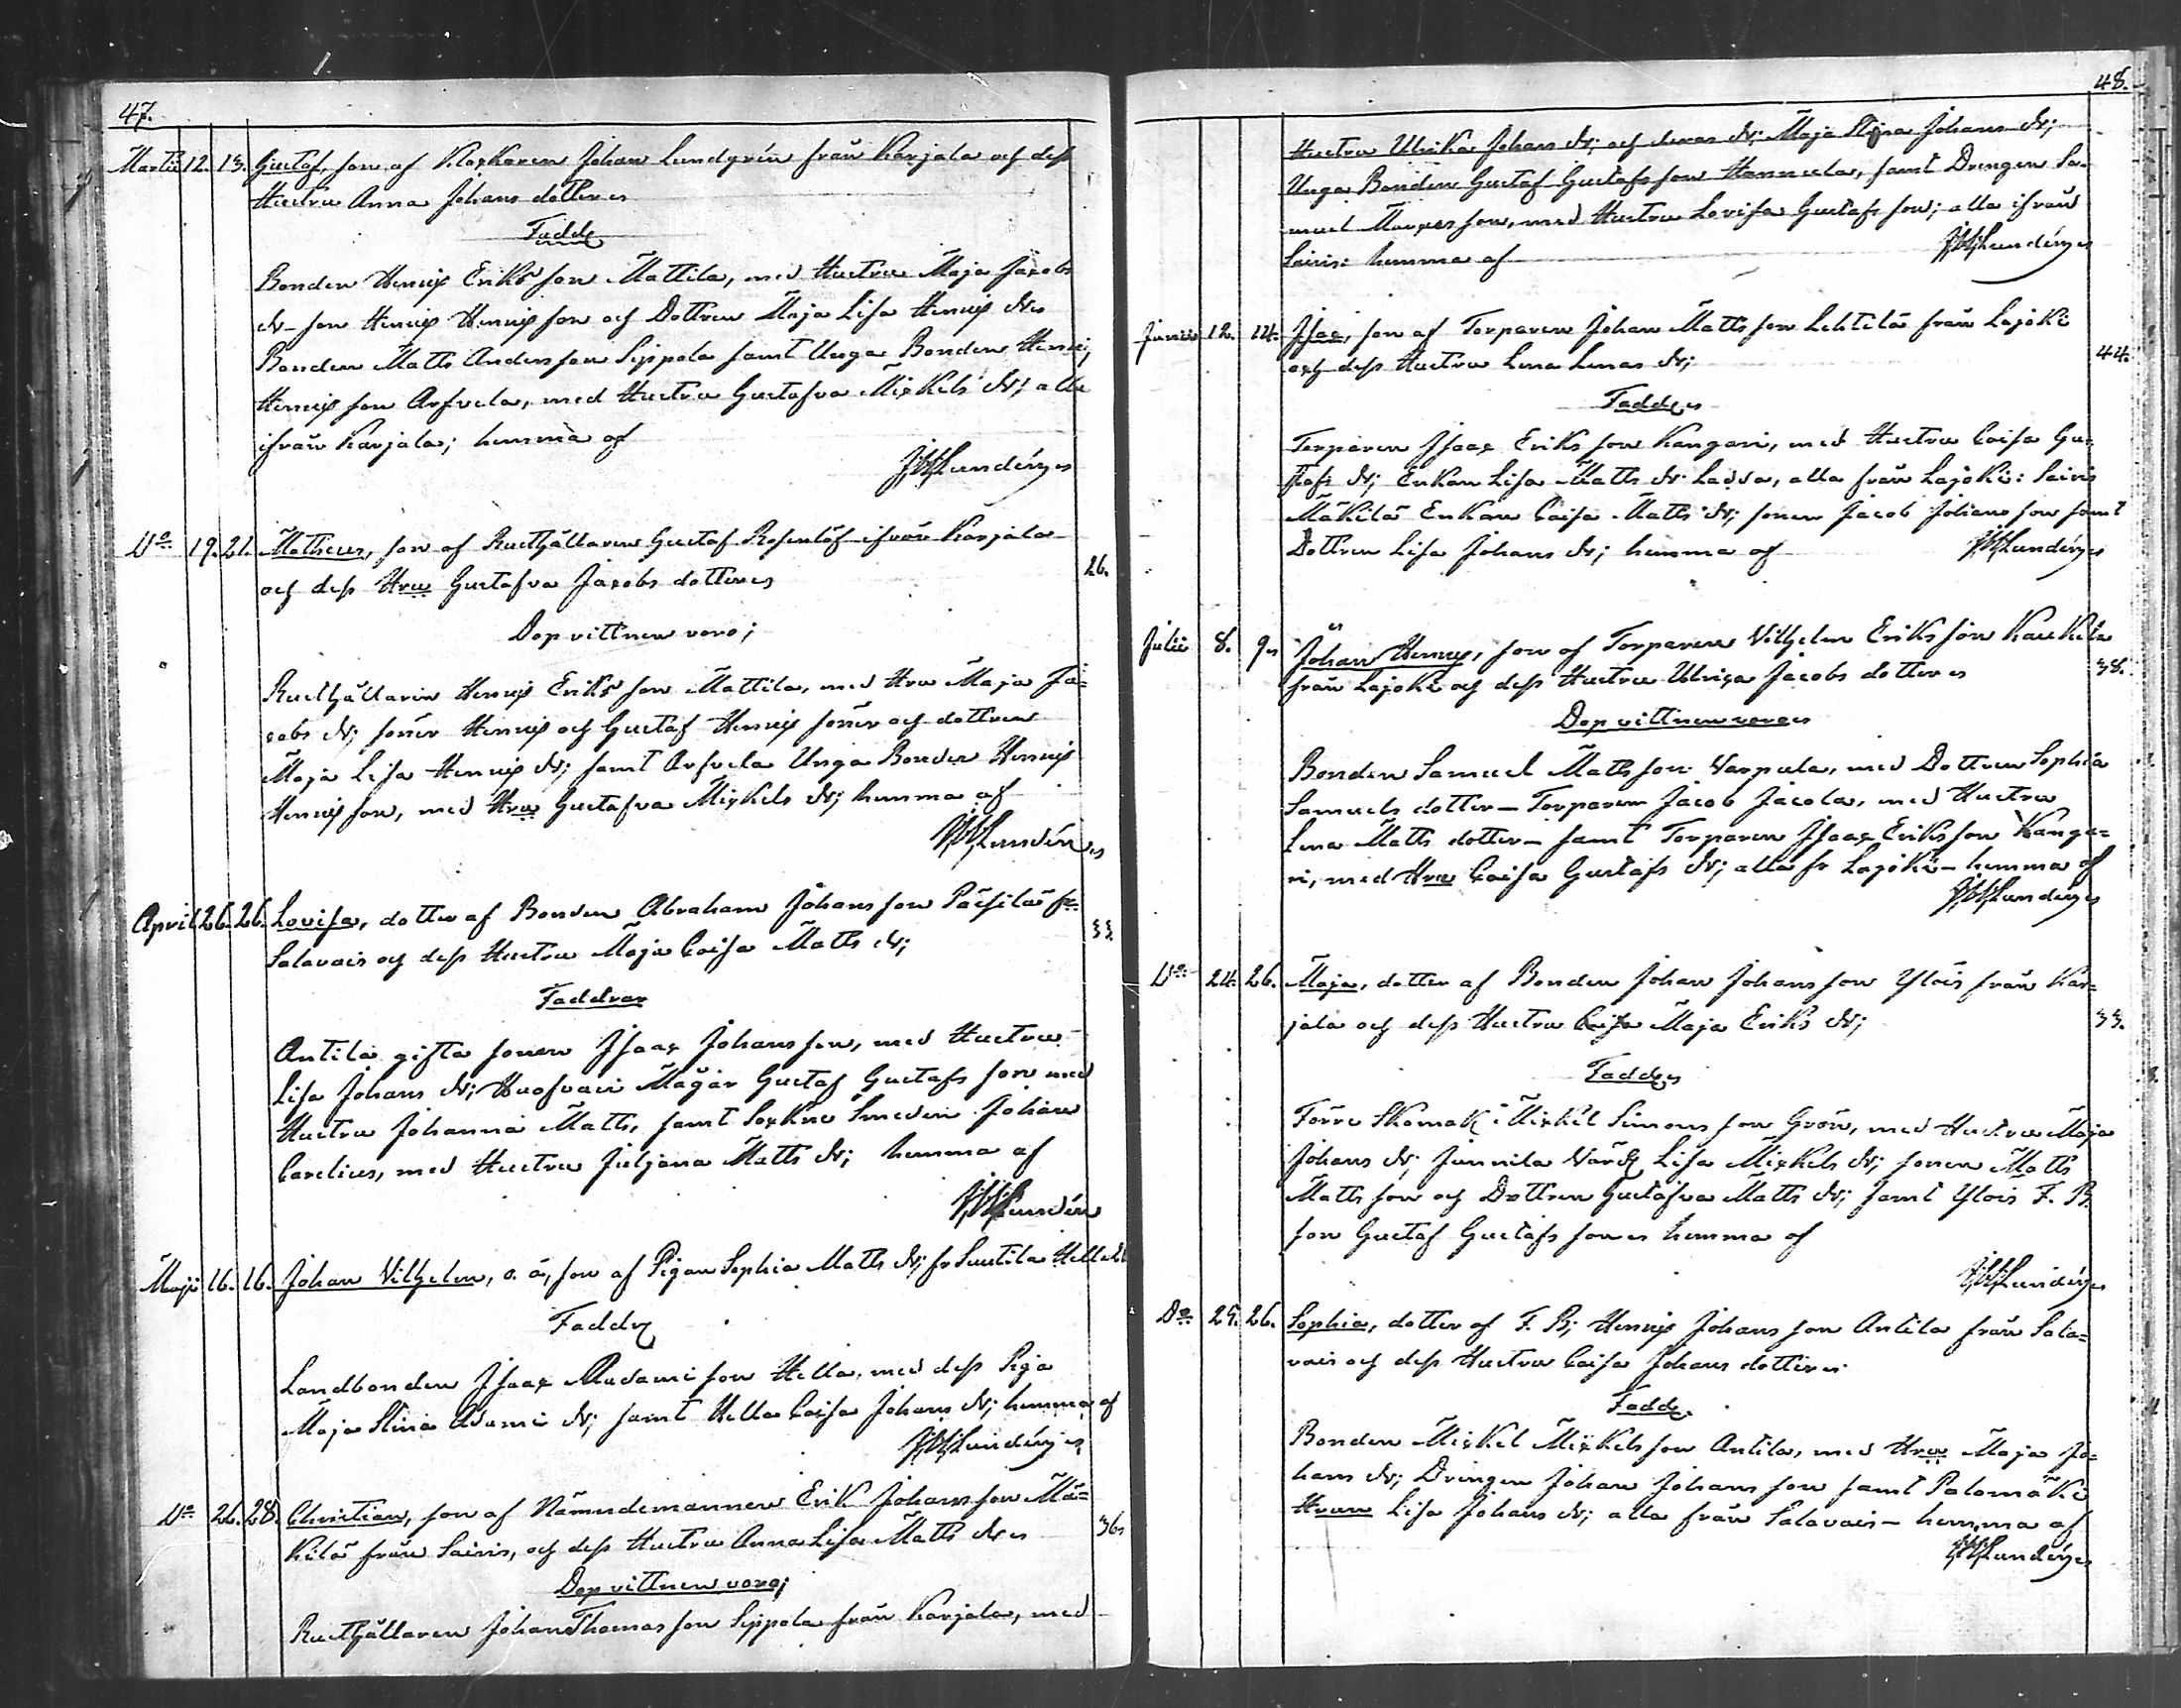 47.
Martii 12. 13. Gustaf, son af Klockaren Johan Lundgrén från Karjala och dess
Hustru Anna Johans dotter
Fadd
Bonden Henric Eriks son Mattila, med Hustru Maja Jacobs
dr son Henric Henric son och Dottren Maja Lisa Henrics dr
Bonden Matts Anders son Sippola samt Unga Bonden Henric
Henric son Arfvela, med Hustru Gustafva Mickels dr; alla
ifrån Karjala; hemma af
Lundén
Do 19. 21. Matheus, son af Rusthållaren Gustaf Rosenlöf ifrån Karjala
och dess Hru Gustafva Jacobs dotter 26.
Dop vittnen voro;
Rusthållaren Henric Eriks son Mattila, med Hru Maja Ja=
cobs dr; söner Henric och Gustaf Henrics söner och dottren
Maja Lisa Henrics dr; samt Arfvela Unga Bonden Henric
Henric son, med Hru Gustafva Mickels dr; hemma af
Lundén
April 26. 26. Lovisa, dotter af Bonden Abraham Johans son Päifilä fr. 33.
Salavais och dess Hustru Maja Caisa Matts dr;
Faddrar
Antila gifta sonen Isaac Johans son, med Hustru
Lisa Johans dr; Magar Gustaf Gustafs son med
Hustru Johanna Matts, samt Sockne Smeden Johan
Carelius, med Hustru Juljana Matts dr; hemma af
Lundén
Maji 16. 16. Johan Vilhelm, o. ä, son af Pigan Sophia Matts dr; fr Suutila Hella
Faddr
Landbonden Isaac Adami son Hella, med dess Piga
Maja Stina Adami dr; samt Hella Caisa Johans dr; hemma af
Lundén
Do 26. 28. Christian, son af Nämndemannen Erik Johans son Mä= 36.
kilä från Sairis, och dess Hustru Anna Lisa Matts dr
Dop vittnen voro;
Rusthållaren Johan Thomas son Sippola från Karjala, med
48.
Hustru Ulrika Johans dr; och deras dr; Maja Stina Johans dr;
Unga Bonden Gustaf Gustafs son Hannula, samt Drengen Sa=
muel Marcus son, med Hustru Lovisa Gustafs son; alla ifrån
Sairis: hemma af Lundén
Junii 12. 14. Isac, son af Torparen Johan Matts son Lehtilä från Lajoki
och dess Hustru Lena Lenas dr; 44.
Faddr
Torparen Isaac Eriks son Kangari, med Hustru Caisa Gu=
stafs dr; Enkan Lisa Matts dr Lassa, alla från Lajoki: Sairis
Mäkilä Enkan Caisa Matts dr; sonen Jacob Johans son samt
Dottren Lisa Johans dr; hemma af Lundén
Julii 8. 9. Johan Henric, son af Torparen Vilhelm Eriks son Kaukila
från Lajoki och dess Hustru Ulrica Jacobs dotter 38.
Dop vittnen voro
Bonden Samuel Matts son Varpula, med Dottren Sophia
Samuels dotter – Torparen Jacob Jacola, med Hustru
Lena Matts dotter – samt Torparen Isaac Eriks son Kanga=
ri, med Hru Caisa Gustafs dr; alla fr Lajoki – hemma af
Lundén
Do 24. 26. Maja, dotter af Bonden Johan Johans son Ylöis från Kar=
jala och dess Hustru Caisa Maja Eriks dr; 33.
Faddr
Förre Skomak: Mickel Simons son Grön, med Hustru Maja
Johans dr; Junnila Värd Lisa Mickels dr; sonen Matts
Matts son och Dottren Gustafva Matts dr; samt Ylöis F. B.
son Gustaf Gustafs son hemma af
Lundén
Do 25. 26. Sophia, dotter af F. B; Henric Johans son Antila från Sala=
vais och dess Hustru Caisa Johans dotter
Fadd.
Bonden Mickel Mickels son Antila, med Hru Maja Jo=
hans dr; Drengen Johan Johans son samt Palomäki
Hrun Lisa Johans dr; alla från Salavais – hemma af
Lundén